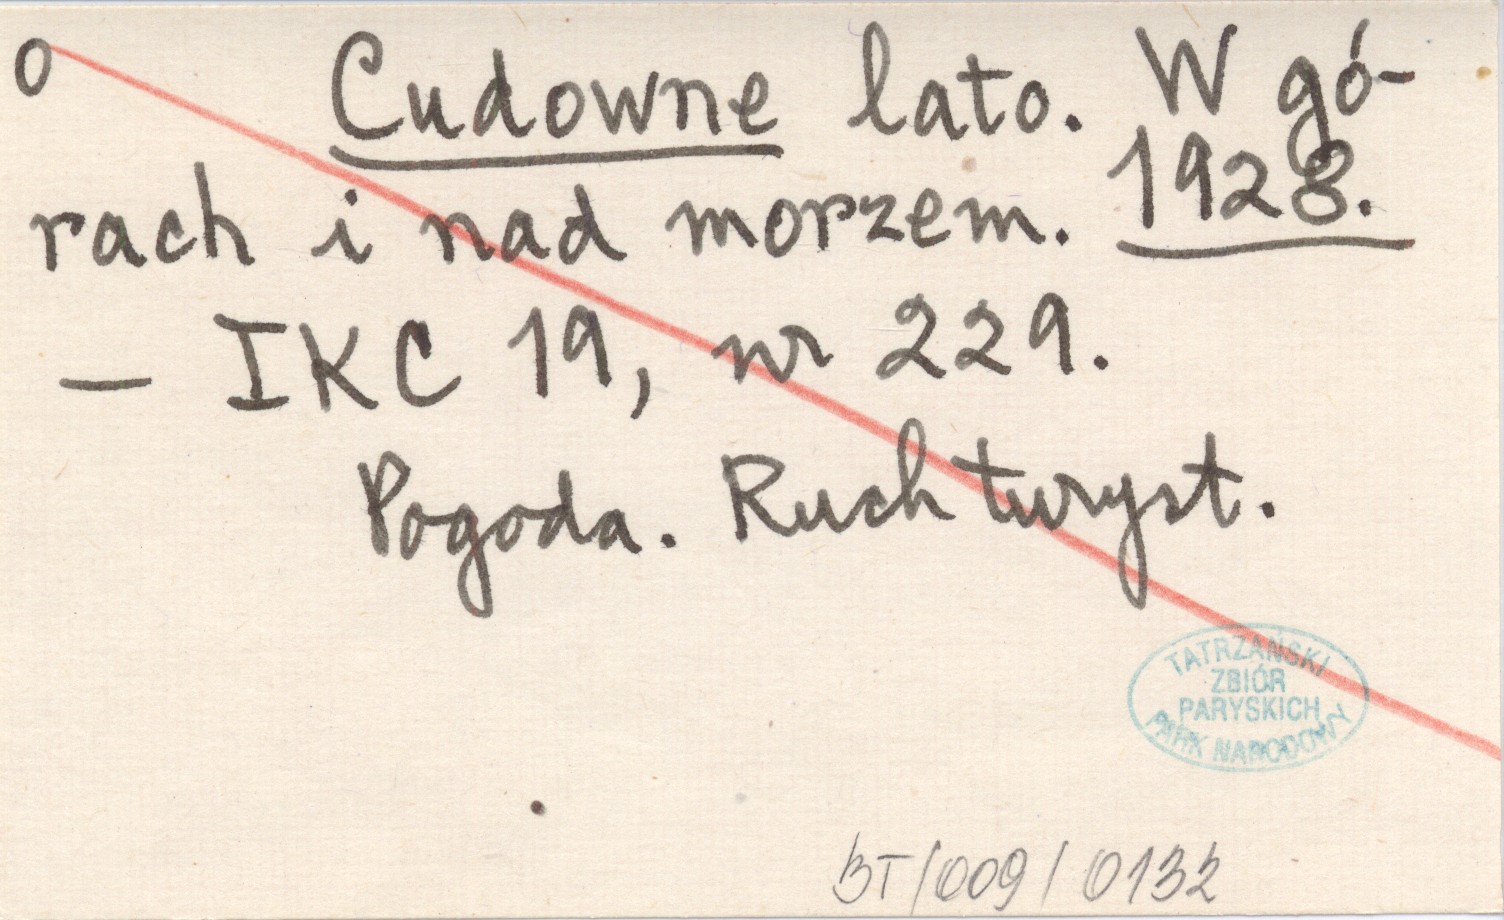 o Cudowne lato. W gó-
rach i nad morzem. 1928.
— IKC 19, nr 229.
Pogoda. Ruch turyst.
TATRZAŃSKI
ZBIÓR
PARYSKICH
PARK NARODOWY
BT/009/0132